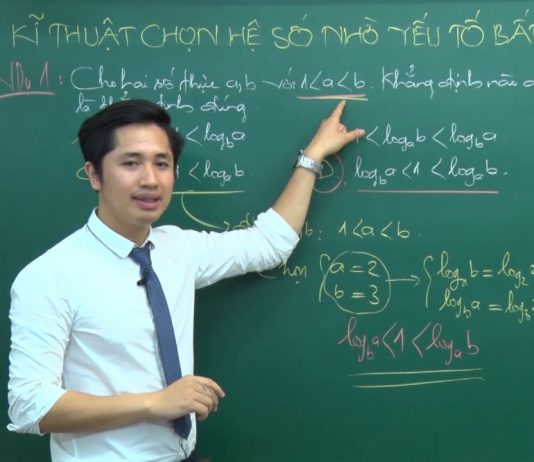 KĨ THUẬT CHỌN HỆ SỐ NHỜ YẾU TỐ BẤT
VDụ 1: Cho hai số thực a,b với 1<a<b. Khẳng định nào
là khẳng định đúng.
< log_b a
1 < log_a b < log_b a
< log_a b.
log_b a < 1 < log_a b.
1<a<b.
chọn { a = 2 → { log_a b = log_2
b = 3 log_b a = log_3
log_b a < 1 < log_a b